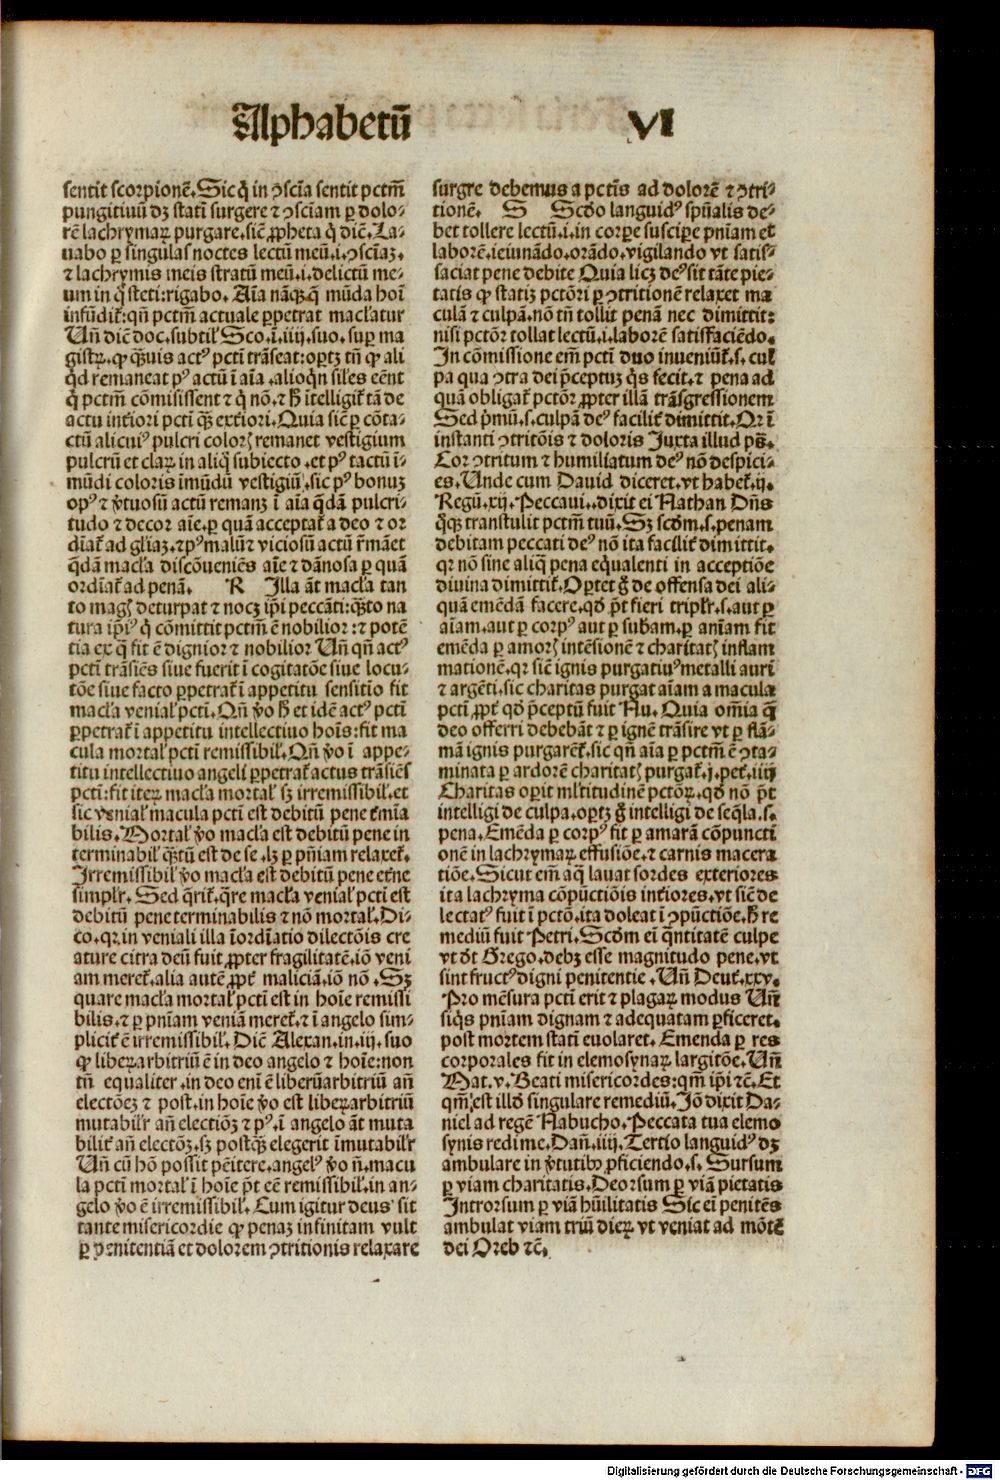 Alphabetū
VI
sentit scorpionē. Sic q̄ in ↄscīa sentit pctm̄
pungitiuū dꝫ statī surgere ⁊ ↄsciam ꝑ dolo⸗
rē lachrymaꝝ purgare. sic̄ ꝓpheta q̄ dic̄. La⸗
uabo ꝑ singulas noctes lectū meū .i. ↄsciaꝫ.
⁊ lachrymis meis stratū meū .i. delictū me⸗
um in q̄ steti: rigabo. Aīa nāqꝫ q̄ mūda hoī
infūdit᷑: qn̄ pctm̄ actuale ꝑpetrat macl̓atur
Un̄ dic̄ doc. subtil̓ Sco. ī .iiij. suo. suꝑ ma
gistꝝ. ꝙ qꝫuis actꝰ pctī trāseat: oportꝫ tn̄ ꝙ ali
q̄d remaneat pꝰ actū ī aīa. alioqn̄ siles eēnt
q̄ pctm̄ cōmisissent ⁊ q̄ nō. ⁊ h̄ itelligit᷑ tā de
actu int̓iori pctī qꝫ ext̓iori. Quia sic̄ ꝑ cōta⸗
ctū alicuiꝰ pulcri coloꝝ remanet vestigium
pulcrū et claꝝ in aliq̄ subiecto. et pꝰ tactū ī⸗
mūdi coloris imūdū vestigiū. sic pꝰ bonuꝫ
opꝰ ⁊ v̓tuosū actū remanꝫ ī aīa q̄dā pulcri⸗
tudo ⁊ decor aīe. ꝑ quā acceptat᷑ a deo ⁊ or
dīat᷑ ad gl̓iaꝫ. ⁊ pꝰ malū ⁊ viciosū actū r̄māet
q̄dā macl̓a discōueniēs aīe ⁊ dānosa ꝑ quā
ordīat᷑ ad penā. R Illa āt macl̓a tan
to magꝭ deturpat ⁊ nocꝫ ip̄i peccāti: qꝫto na
tura ip̄iꝰ q̄ cōmittit pctm̄ ē nobilior: ⁊ potē
tia ex q̄ fit ē dignior ⁊ nobilior Un̄ qn̄ actꝰ
pctī trāsiēs siue fuerit ī cogitatōe siue locu⸗
tōe siue facto ꝑpetrat᷑ ī appetitu sensitīo fit
macl̓a venial̓ pctī. Qn̄ v̓o h̄ et idē actꝰ pctī
ꝑpetrat᷑ ī appetitu intellectiuo hoīs: fit ma
cula mortal̓ pctī remissibil̓. Qn̄ v̓o ī appe⸗
titu intellectiuo angeli ꝑpetrat᷑ actus trāsiēs
pctī: fit iteꝝ macl̓a mortal̓ sꝫ irremissibil̓. et
sic venial̓ macula pctī est debitū pene t̓mīa
bilis. Mortal̓ v̓o macl̓a est debitū pene in
terminabil̓ qꝫtū est de se. lꝫ ꝑ pn̄iam relaxet᷑.
Irremissibil̓ v̓o macl̓a est debitū pene et̓ne
simpl̓r. Sed q̄rit᷑. q̄re macl̓a venial̓ pctī est
debitū pene terminabilis ⁊ nō mortal̓. Di⸗
co. qꝛ in veniali illa iordīatio dilectōis cre
ature citra deū fuit ꝓpter fragilitatē. iō veni
am meret᷑. alia autē ꝓpt̓ maliciā. iō nō. Sꝫ
quare macl̓a mortal̓ pctī est in hoīe remissi
bilis. ⁊ ꝑ pn̄iam veniā meret᷑. ⁊ ī angelo sim⸗
plicit̓ ē irremissibil̓. Dic̄ Alexan. in .ij. suo
ꝙ liberarbitriū ē in deo angelo ⁊ hoīe: non
tn̄ equaliter. in deo enī ē liberūarbitriū an̄
electōeꝫ ⁊ post. in hoīe v̓o est libeꝝarbitriū
mutabil̓r an̄ electiōꝫ ⁊ pꝰ. ī angelo āt muta
bilit̓ an̄ electōꝫ. sꝫ postqꝫ elegerit īmutabil̓r
Un̄ cū hō possit pēitere. angelꝰ v̓o n̄. macu
la pctī mortal̓ ī hoīe pōt eē remissibil̓. in an⸗
gelo v̓o ē irremissibil̓. Cum igitur deus sit
tante misericordie ꝙ penaꝫ infinitam vult
ꝑ penitentiā et dolorem ↄtritionis relaxare
surgre debemus a pctīs ad dolorē ⁊ ↄtri⸗
tionē. S Scdo languidꝰ spūalis de⸗
bet tollere lectū .i. in corꝑe suscipe pn̄iam et
laborē. ieiunādo. orādo. vigilando vt satis⸗
faciat pene debite Quia licꝫ deꝰ sit tāte pie⸗
tatis ꝙ statiꝫ pctōri ꝑ ↄtritionē relaxet ma
culā ⁊ culpā. nō tn̄ tollit penā nec dimittit:
nisi pctōr tollat lectū .i. laborē satisfaciēdo.
In cōmissione em̄ pctī duo inveniūt᷑ .s. cul
pa qua ↄtra dei p̄ceptuꝫ q̄s fecit. ⁊ pena ad
quā obligat᷑ pctōr ꝓpter illā trāsgressionem
Sed p̄mū .s. culpā deꝰ facilit̓ dimittit. Qꝛ ī
instanti ↄtritōis ⁊ doloris Juxta illud ps̄.
Cor ↄtritum ⁊ humiliatum deꝰ nō despici⸗
es. Unde cum Dauid diceret. vt habet᷑ .ij.
Regū .xij. Peccaui. dixit ei Nathan Dn̄s
q̄qꝫ transtulit pctm̄ tuū. Sꝫ scdm .s. penam
debitam peccati deꝰ nō ita facilit̓ dimittit.
qꝛ nō sine aliq̄ pena eq̄ualenti in acceptiōe
diuina dimittit᷑. Oportet g̊ de offensa dei ali⸗
quā emēdā facere. qd̓ pōt fieri tripl̓r .s. aut ꝑ
aīam. aut ꝑ corpꝰ aut ꝑ sub̄am. ꝑ anīam fit
emēda ꝑ amoꝝ intēsionē ⁊ charitatꝭ inflam
mationē. qꝛ sic̄ ignis purgatiuꝰ metalli auri
⁊ argēti. sic charitas purgat aīam a macula
pctī ꝓpt̓ qd̓ p̄ceptū fuit Nu. Quia om̄ia q̄
deo offerri debebāt ⁊ ꝑ ignē trāsire vt ꝑ flā⸗
mā ignis purgarēt᷑. sic qn̄ aīa ꝑ pctm̄ ē ↄta⸗
minata ꝑ ardorē charitatꝭ purgat᷑. j. pet᷑. iiij
Charitas oꝑit ml̓titudinē pctōꝝ. qd̓ nō pōt
intelligi de culpa. oportꝫ g̊ intelligi de seq̄la .s.
pena. Emēda ꝑ corpꝰ fit ꝑ amarā cōpuncti
onē in lachrymaꝝ effusiōe. ⁊ carnis macera
tiōe. Sicut em̄ aq̄ lauat sordes exteriores
ita lachryma cōpūctiōis int̓iores. vt sic̄ de
lectatꝰ fuit ī pctō. ita doleat ī ↄpūctiōe. h̄ re
mediū fuit Petri. Scdm ei q̄ntitatē culpe
vt dt̓ Grego. debꝫ esse magnitudo pene. vt
sint fructꝰ digni penitentie. Un̄ Deut̓. xxv.
Pro mēsura pctī erit ⁊ plagaꝝ modus Un̄
siq̄s pn̄iam dignam ⁊ adequatam ꝑficeret.
post mortem statī euolaret. Emenda ꝑ res
corporales fit in elemosynaꝝ largitōe. Un̄
Mat. v. Beati misericordes: qm̄ ip̄i ⁊c̄. Et
qm̄ est illd̓ singulare remediū. Jō dixit Da⸗
niel ad regē Nabucho. Peccata tua elemo
synis redime. Dan̄. iiij. Tertio languidꝰ dꝫ
ambulare in v̓tutibꝫ ꝓficiendo .s. Sursum
ꝑ viam charitatis. Deorsum ꝑ viā pietatis
Introrsum ꝑ viā hūilitatis Sic ei penitēs
ambulat viam triū dieꝝ vt veniat ad mōtē
dei Oreb ⁊c̄.
Digitalisierung gefördert durch die Deutsche Forschungsgemeinschaft - DFG